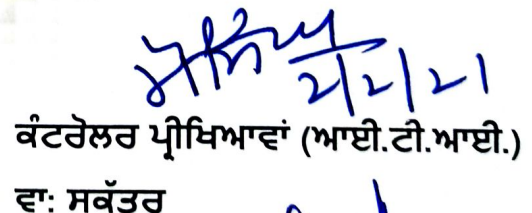 2/2/21
ਕੰਟਰੋਲਰ ਪ੍ਰੀਖਿਆਵਾਂ (ਆਈ.ਟੀ.ਆਈ.)
ਵਾ: ਸਕੱਤਰ